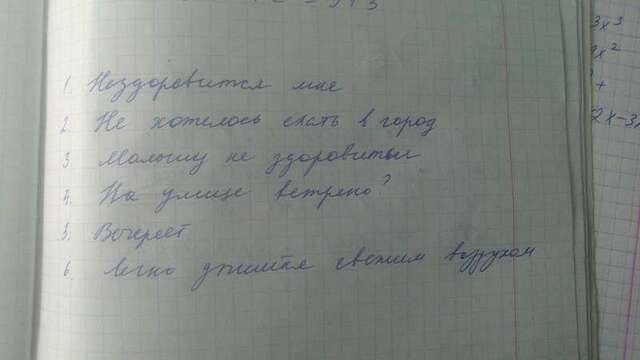 1. Нездоровится мне
2. Не хотелось ехать в город
3. Малышу не здоровится
4. На улице ветрено?
5. Вечереет
6. Легко дышится свежим воздухом
3x³
x²
+
2x-3